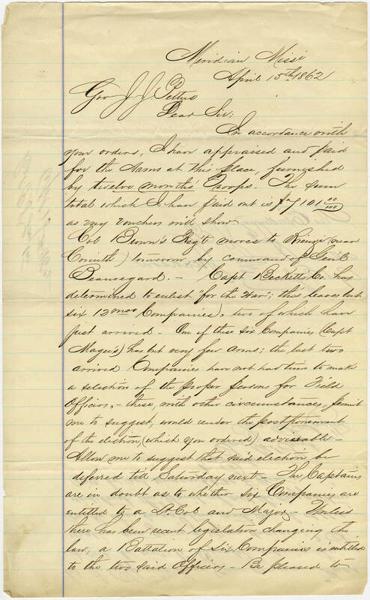 Meridian Missi
April 15th 1862
Gov J. J. Pettus
Dear Sir:
In accordance with
your orders, I have appraised and paid
for the Arms at this place furnished
by twelve months Troops. The sum
total which I have paid out is $7101 00/100
as my vouchers will show
Col Brown's Reg't moves to Rienzi (near
Corinth) tomorrow by command of Gen'l
Beauregard. — Capt Becketts Co. has
determined to enlist "for the War"; this leaves but
six 12 mos Companies, two of which have
just arrived — One of these six Companies (Capt
Magees) has but very few Arms; the last two
arrived Companies have not had time to make
a selection of the proper persons for Field
Officers, — these, with other circumstances, permit
me to suggest, would render the postponement
of the election, (which you ordered) advisable —
Allow me to suggest that said election be
deferred till Saturday next — The Captains
are in doubt as to whether six Companies are
entitled to a Lt Col and Major — Unless
there has been recent legislation changing the
law, a Battalion of Six Companies is entitled
to the two said Officers — Be pleased to